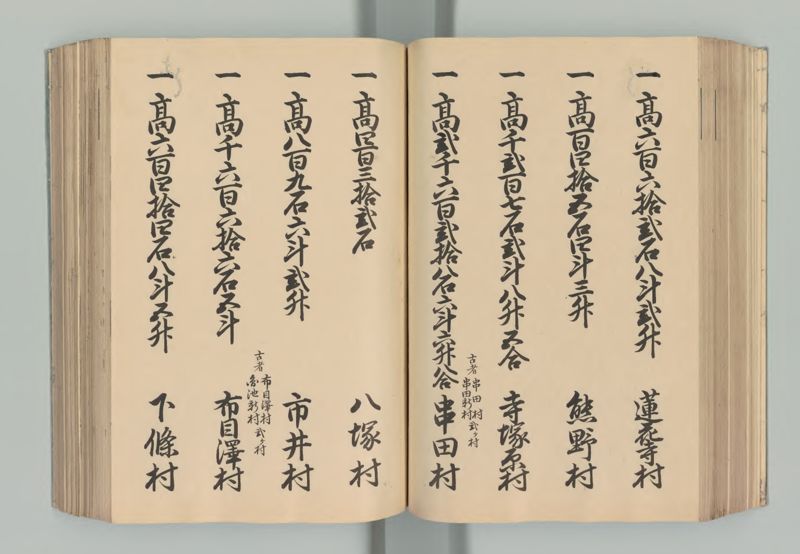 一 高六百六拾弐石八斗弐升 蓮花寺村
一 高百四拾五石四斗三升 熊野村
一 高千弐百七石弐斗八升五合 寺塚原村
古者 串田村 串田新村 弐ケ村
一 高弐千六百弐拾八石六斗六升八合 串田村
一 高四百三拾弐石 八塚村
一 高八百九石六斗弐升 市井村
古者 布目澤村 池新村 弐ケ村
一 高千六百六拾六石五斗 布目澤村
一 高六百四拾四石八斗五升 下條村